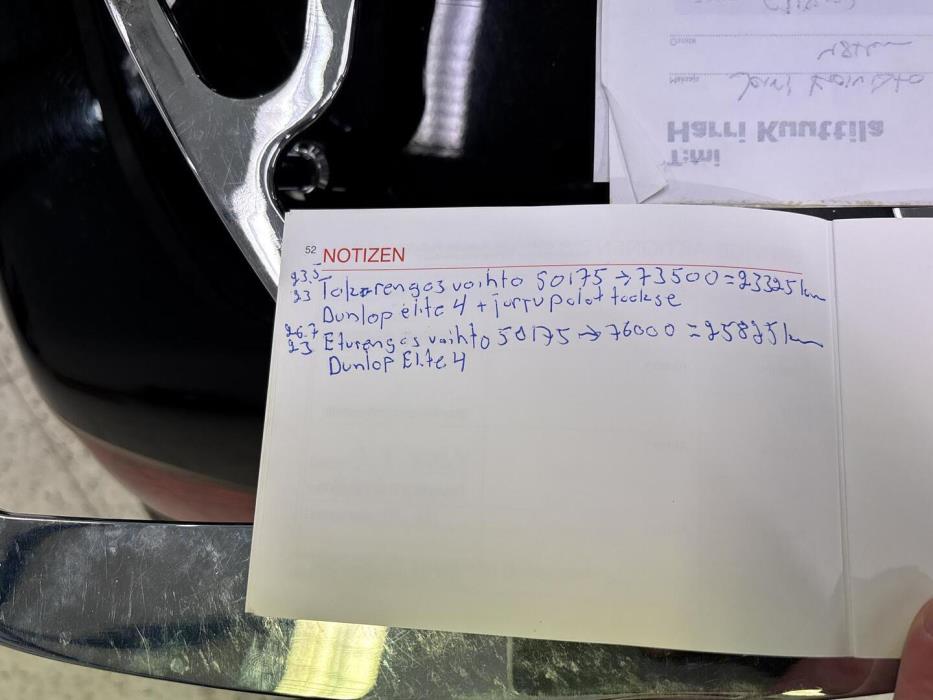 Harri Kuuttila
T:mi
52 NOTIZEN
23.5
23 Takarengas vaihto 50175 → 73500 = 23325 km
Dunlop elite 4 + jarrupalat taakse
26.7
23 Eturengas vaihto 50175 → 76000 = 25825 km
Dunlop Elite 4